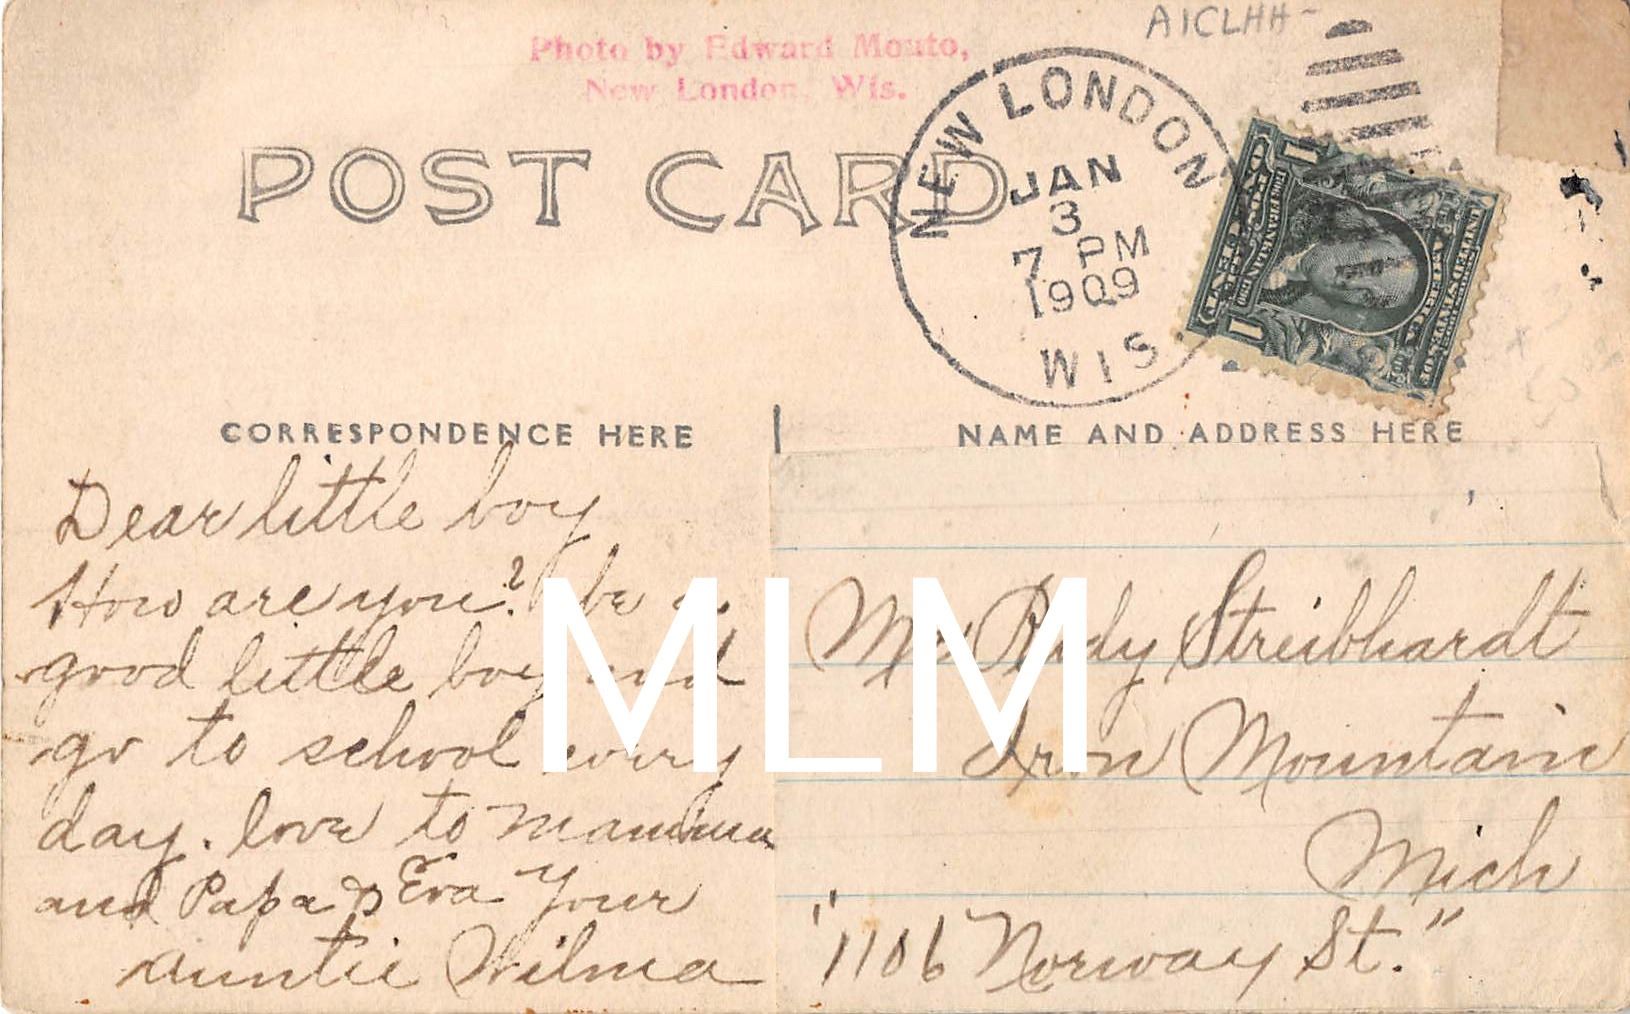 AICLHH-
Photo by Edward Mouto,
New London, Wis.
POST CARD
NEW LONDON
JAN
3
7 PM
1909
WIS.
CORRESPONDENCE HERE
NAME AND ADDRESS HERE
Dear little boy
How are you? be a
good little boy and
go to school every
day. love to Mamma
and Papa & Eva Your
auntie Wilma
Mr Rudy Streibhardt
Iron Mountain
Mich
"1106 Norway St."
MLM